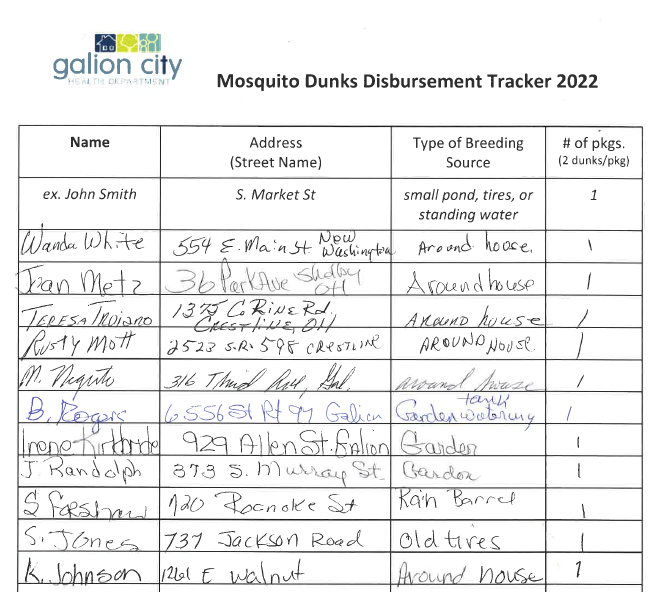 galion city
HEALTH DEPARTMENT
Mosquito Dunks Disbursement Tracker 2022
Name
Address
(Street Name)
Type of Breeding
Source
# of pkgs.
(2 dunks/pkg)
ex. John Smith
S. Market St
small pond, tires, or
standing water
1
Wanda White 554 E. Main St New Washington Around house. 1
Metz 36 Park Ave Shelby OH Around house 1
TERESA TROIANO 1375 CO RINE RD. CRESTLINE, OH AROUND house 1
Rusty Mott 2523 S.R. 598 CRESTLINE AROUND HOUSE. 1
M. 316 Third Ave, Gal. around house 1
B. Rogers 6556 St Rt 97 Galion Garden watering tank 1
Irene Kirkbride 929 Allen St. Galion Garden 1
J. Randolph 373 S. Murray St. Garden 1
S 720 Roanoke St Rain Barrel 1
S. Jones 737 Jackson Road Old tires 1
K. Johnson 1261 E walnut Around house 1